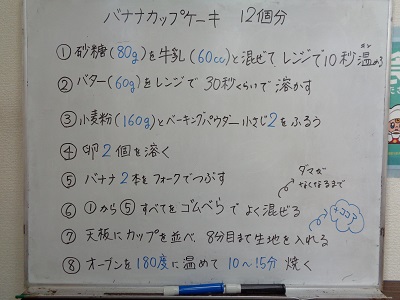 バナナカップケーキ 12個分
① 砂糖(80g)を牛乳(60cc)と混ぜて レンジで10秒温める
② バター(60g)をレンジで 30秒くらいで 溶かす
③ 小麦粉(160g)とベーキングパウダー 小さじ2をふるう
④ 卵2個を溶く
⑤ バナナ2本をフォークでつぶす
ダマが
なくなるまで
⑥ ①から⑤すべてをゴムべらで よく混ぜる
⑦ 天板にカップを並べ、8分目まで生地を入れる
⑧ オーブンを180度に温めて 10〜15分 焼く